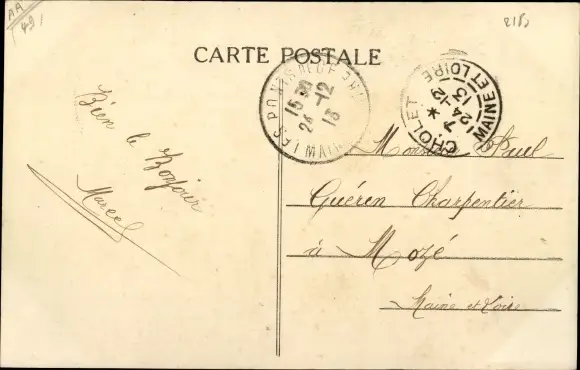 AA
49
CARTE POSTALE
LES PONTS DE CÉ
15 30
24 -12
13
CHOLET
MAINE ET LOIRE
7 *
24 -12
13
Bien le Bonjour
Marcel
Monsieur Paul
Guérin Charpentier
à Mozé
Maine et Loire